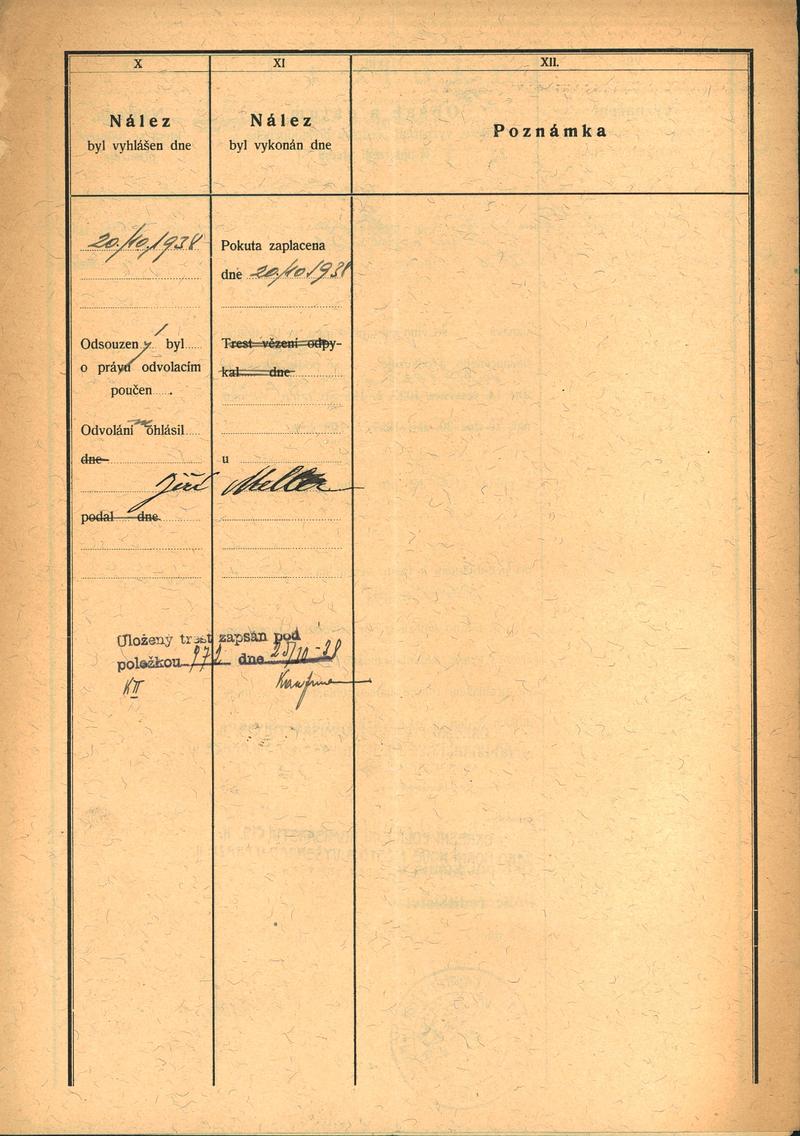 X
Nález
byl vyhlášen dne
20./10.1938
Odsouzený byl
o právu odvolacím
poučen .
Odvolání ohlásil
dne
podal dne
XI
Nález
byl vykonán dne
Pokuta zaplacena
dne 20./10.1938
Trest vězení odpy-
kal dne
u
Jiří Meller
Uložený trest zapsán pod
položkou 972 dne 25/10-38
KII
XII.
Poznámka